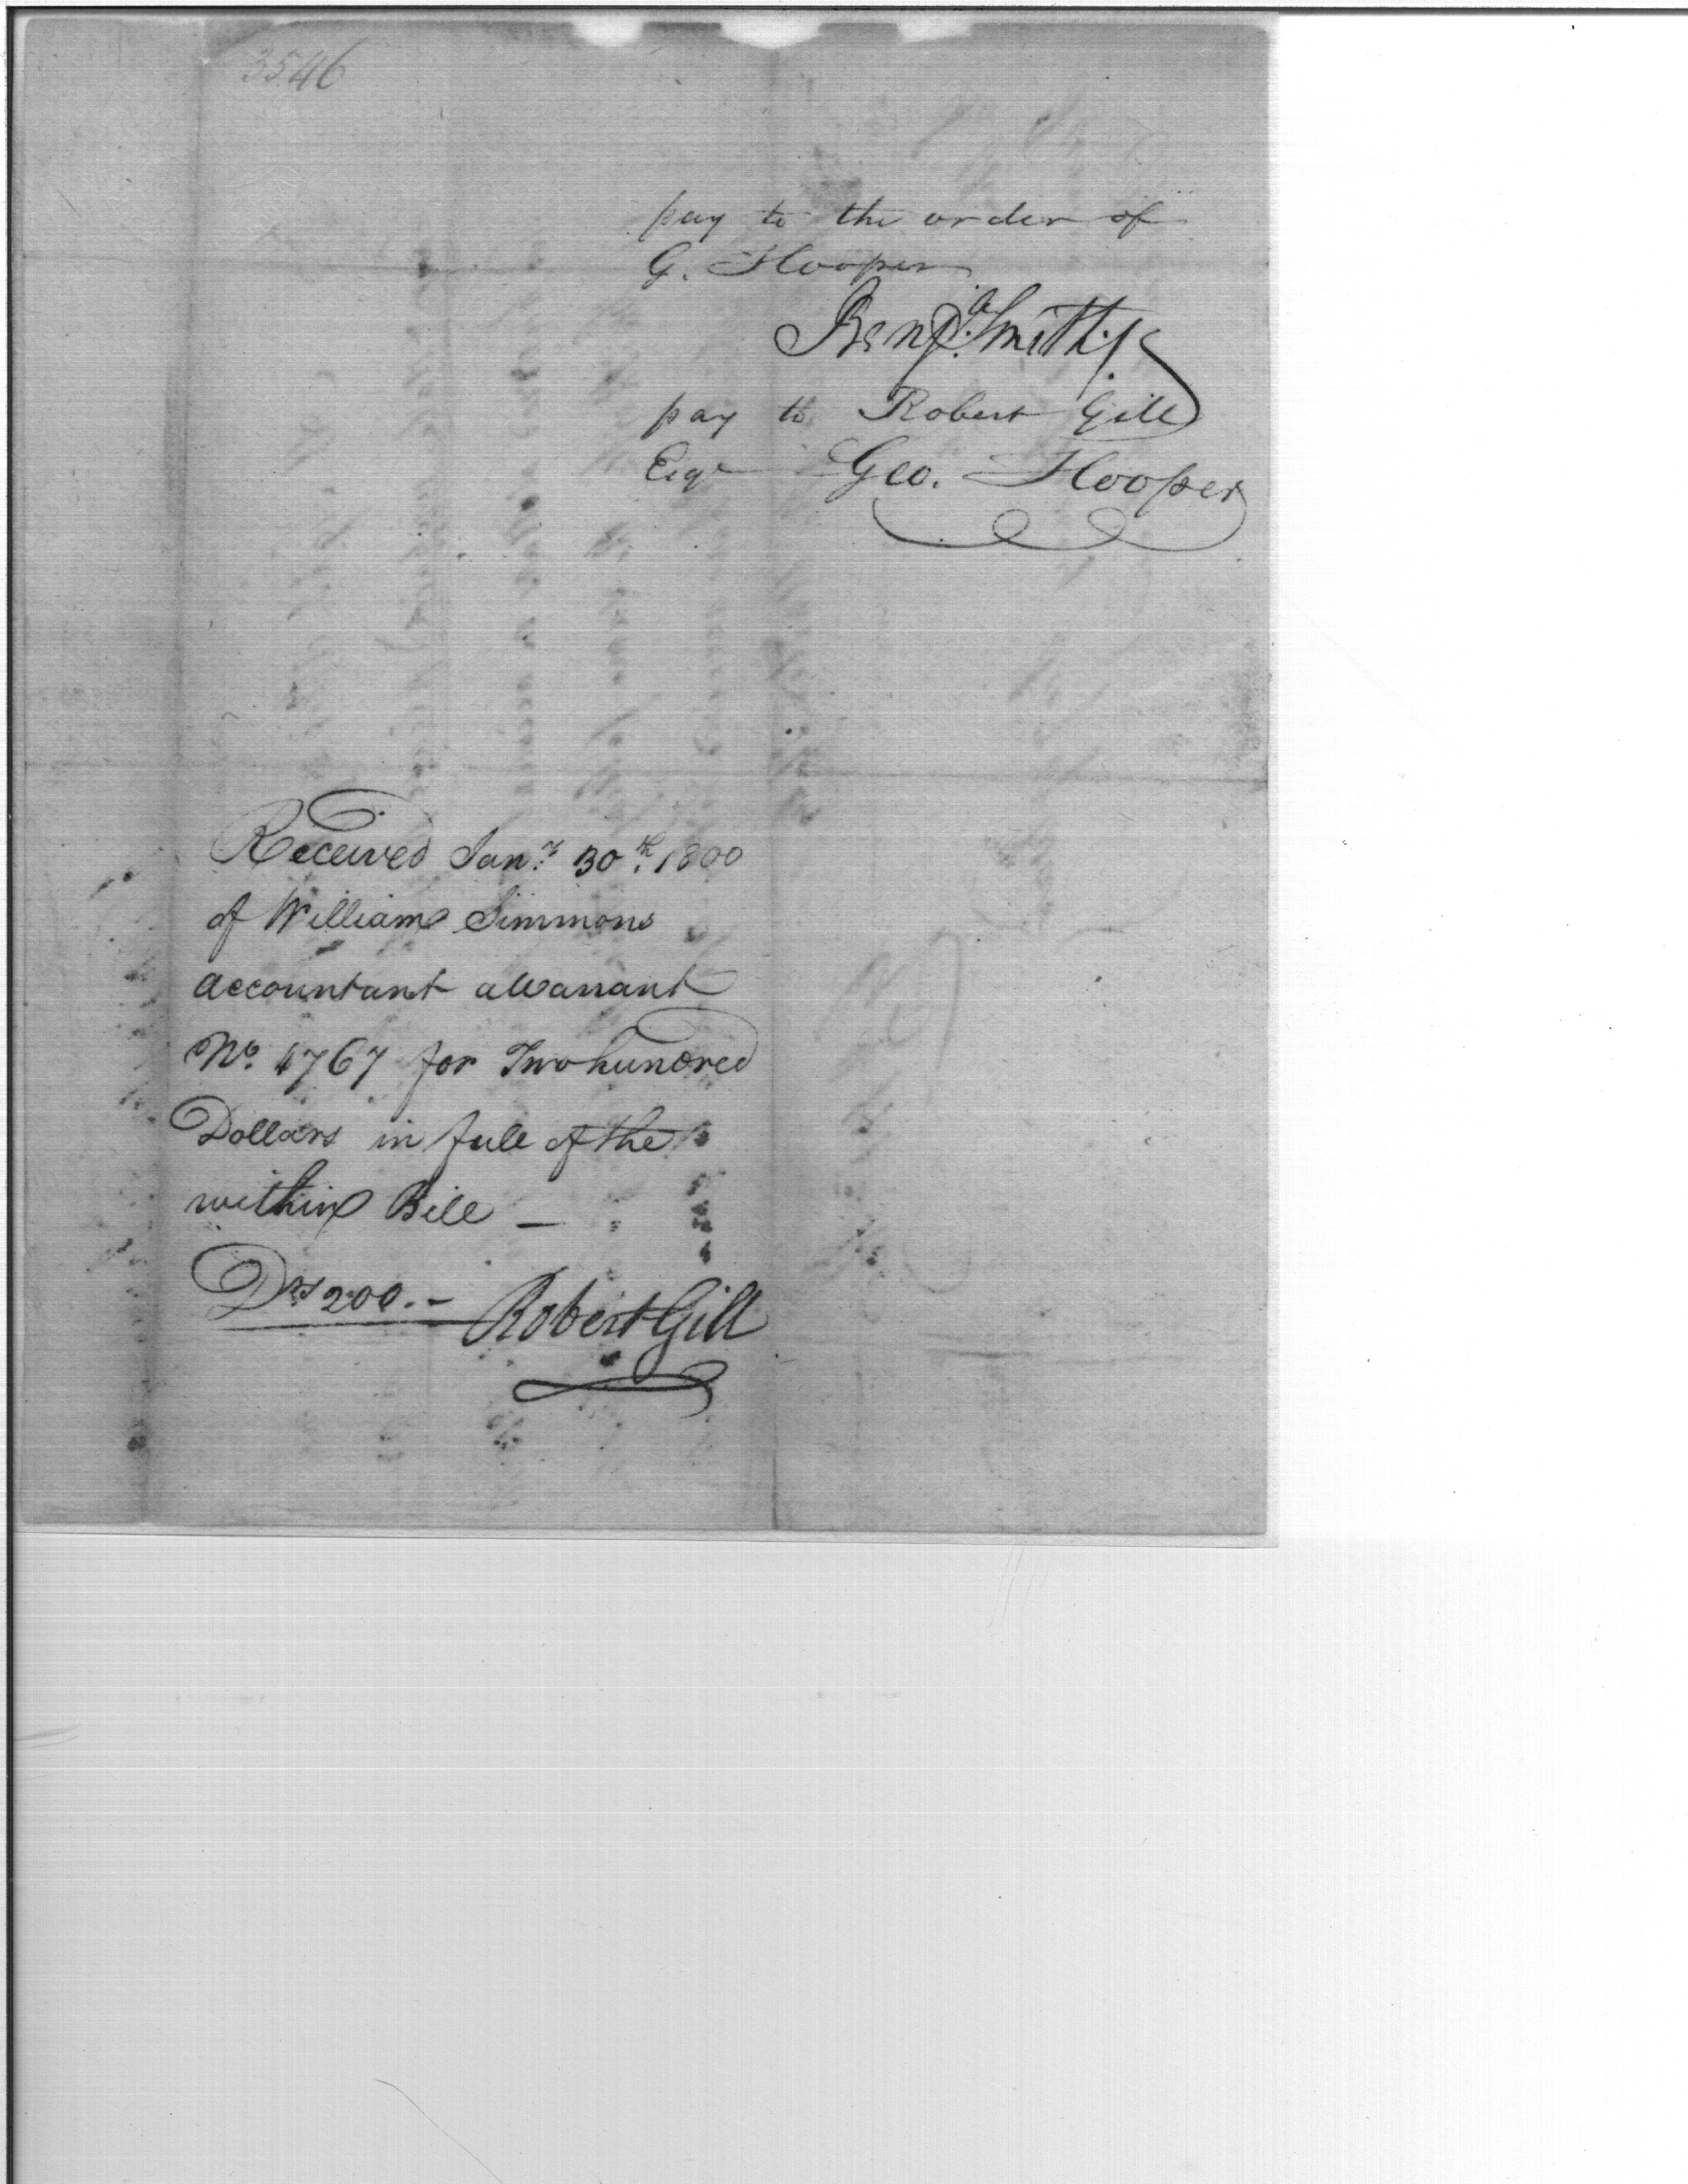 3546
pay to the order of
G. Hooper
Benjᵃ. Smith
pay to Robert Gill
Esqʳ Geo. Hooper
Received Janʸ. 30ᵗʰ. 1800
of William Simmons
accountant a Warrant
Nᵒ. 4767 for Two hundred
Dollars in full of the
within Bill —
Dˡˢ 200.–
Robert Gill